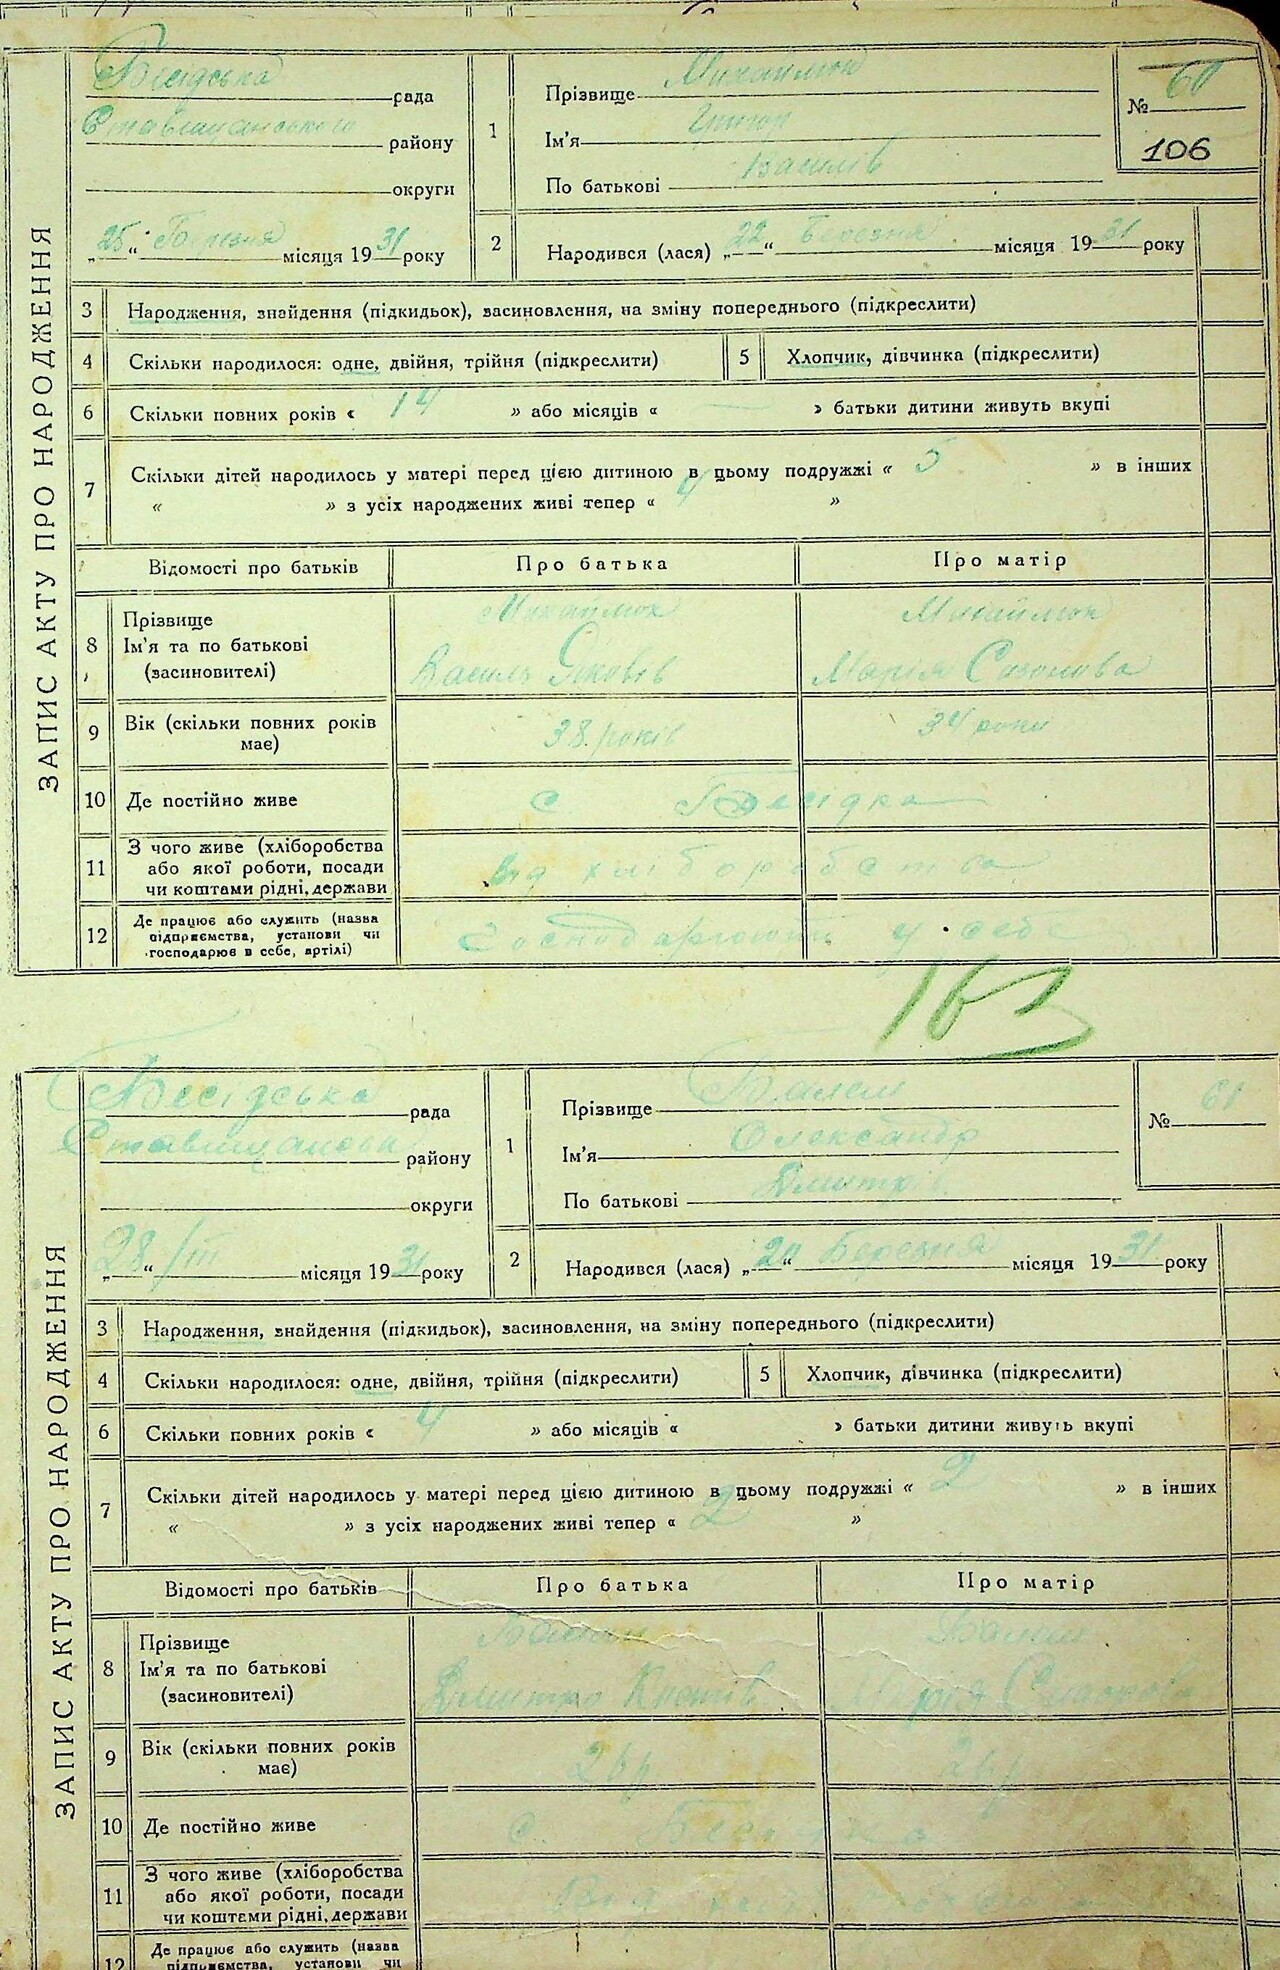 ЗАПИС АКТУ ПРО НАРОДЖЕННЯ
Бесідська рада
Ставищанського району
округи
„25“ Березня місяця 1931 року
1
Прізвище Михайлюк
Ім'я Григор
По батькові Василів
№ 60
106
2
Народився (лася) „22“ Березня місяця 1931 року
3 Народження, знайдення (підкидьок), засиновлення, на зміну попереднього (підкреслити)
4 Скільки народилося: одне, двійня, трійня (підкреслити) 5 Хлопчик, дівчинка (підкреслити)
6 Скільки повних років « 14 » або місяців « — » батьки дитини живуть вкупі
7 Скільки дітей народилось у матері перед цією дитиною в цьому подружжі « 5 » в інших
« » з усіх народжених живі тепер « 4 »
Відомості про батьків Про батька Про матір
8 Прізвище Михайлюк Михайлюк
Ім'я та по батькові
(засиновителі) Василь Яковів Марія Созонова
9 Вік (скільки повних років
має) 38 років 34 роки
10 Де постійно живе с Бесідка
11 З чого живе (хліборобства
або якої роботи, посади
чи коштами рідні, держави
Від хліборобства
12 Де працює або служить (назва
підприємства, установи чи
господарює в себе, артілі)
Господарюють у себе
163
ЗАПИС АКТУ ПРО НАРОДЖЕННЯ
Бесідська рада
Ставищанськ району
округи
„28“/III місяця 1931 року
1
Прізвище
Ім'я Олександр
По батькові Дмитрів
№ 61
2
Народився (лася) „20“ Березня місяця 1931 року
3 Народження, знайдення (підкидьок), засиновлення, на зміну попереднього (підкреслити)
4 Скільки народилося: одне, двійня, трійня (підкреслити) 5 Хлопчик, дівчинка (підкреслити)
6 Скільки повних років « 4 » або місяців « » батьки дитини живуть вкупі
7 Скільки дітей народилось у матері перед цією дитиною в цьому подружжі « 2 » в інших
« » з усіх народжених живі тепер « 2 »
Відомості про батьків Про батька Про матір
8 Прізвище
Ім'я та по батькові
(засиновителі) Дмитро
9 Вік (скільки повних років
має) 26 р
10 Де постійно живе с Бесідка
11 З чого живе (хліборобства
або якої роботи, посади
чи коштами рідні, держави
Від
12 Де працює або служить (назва
підприємства, установи чи